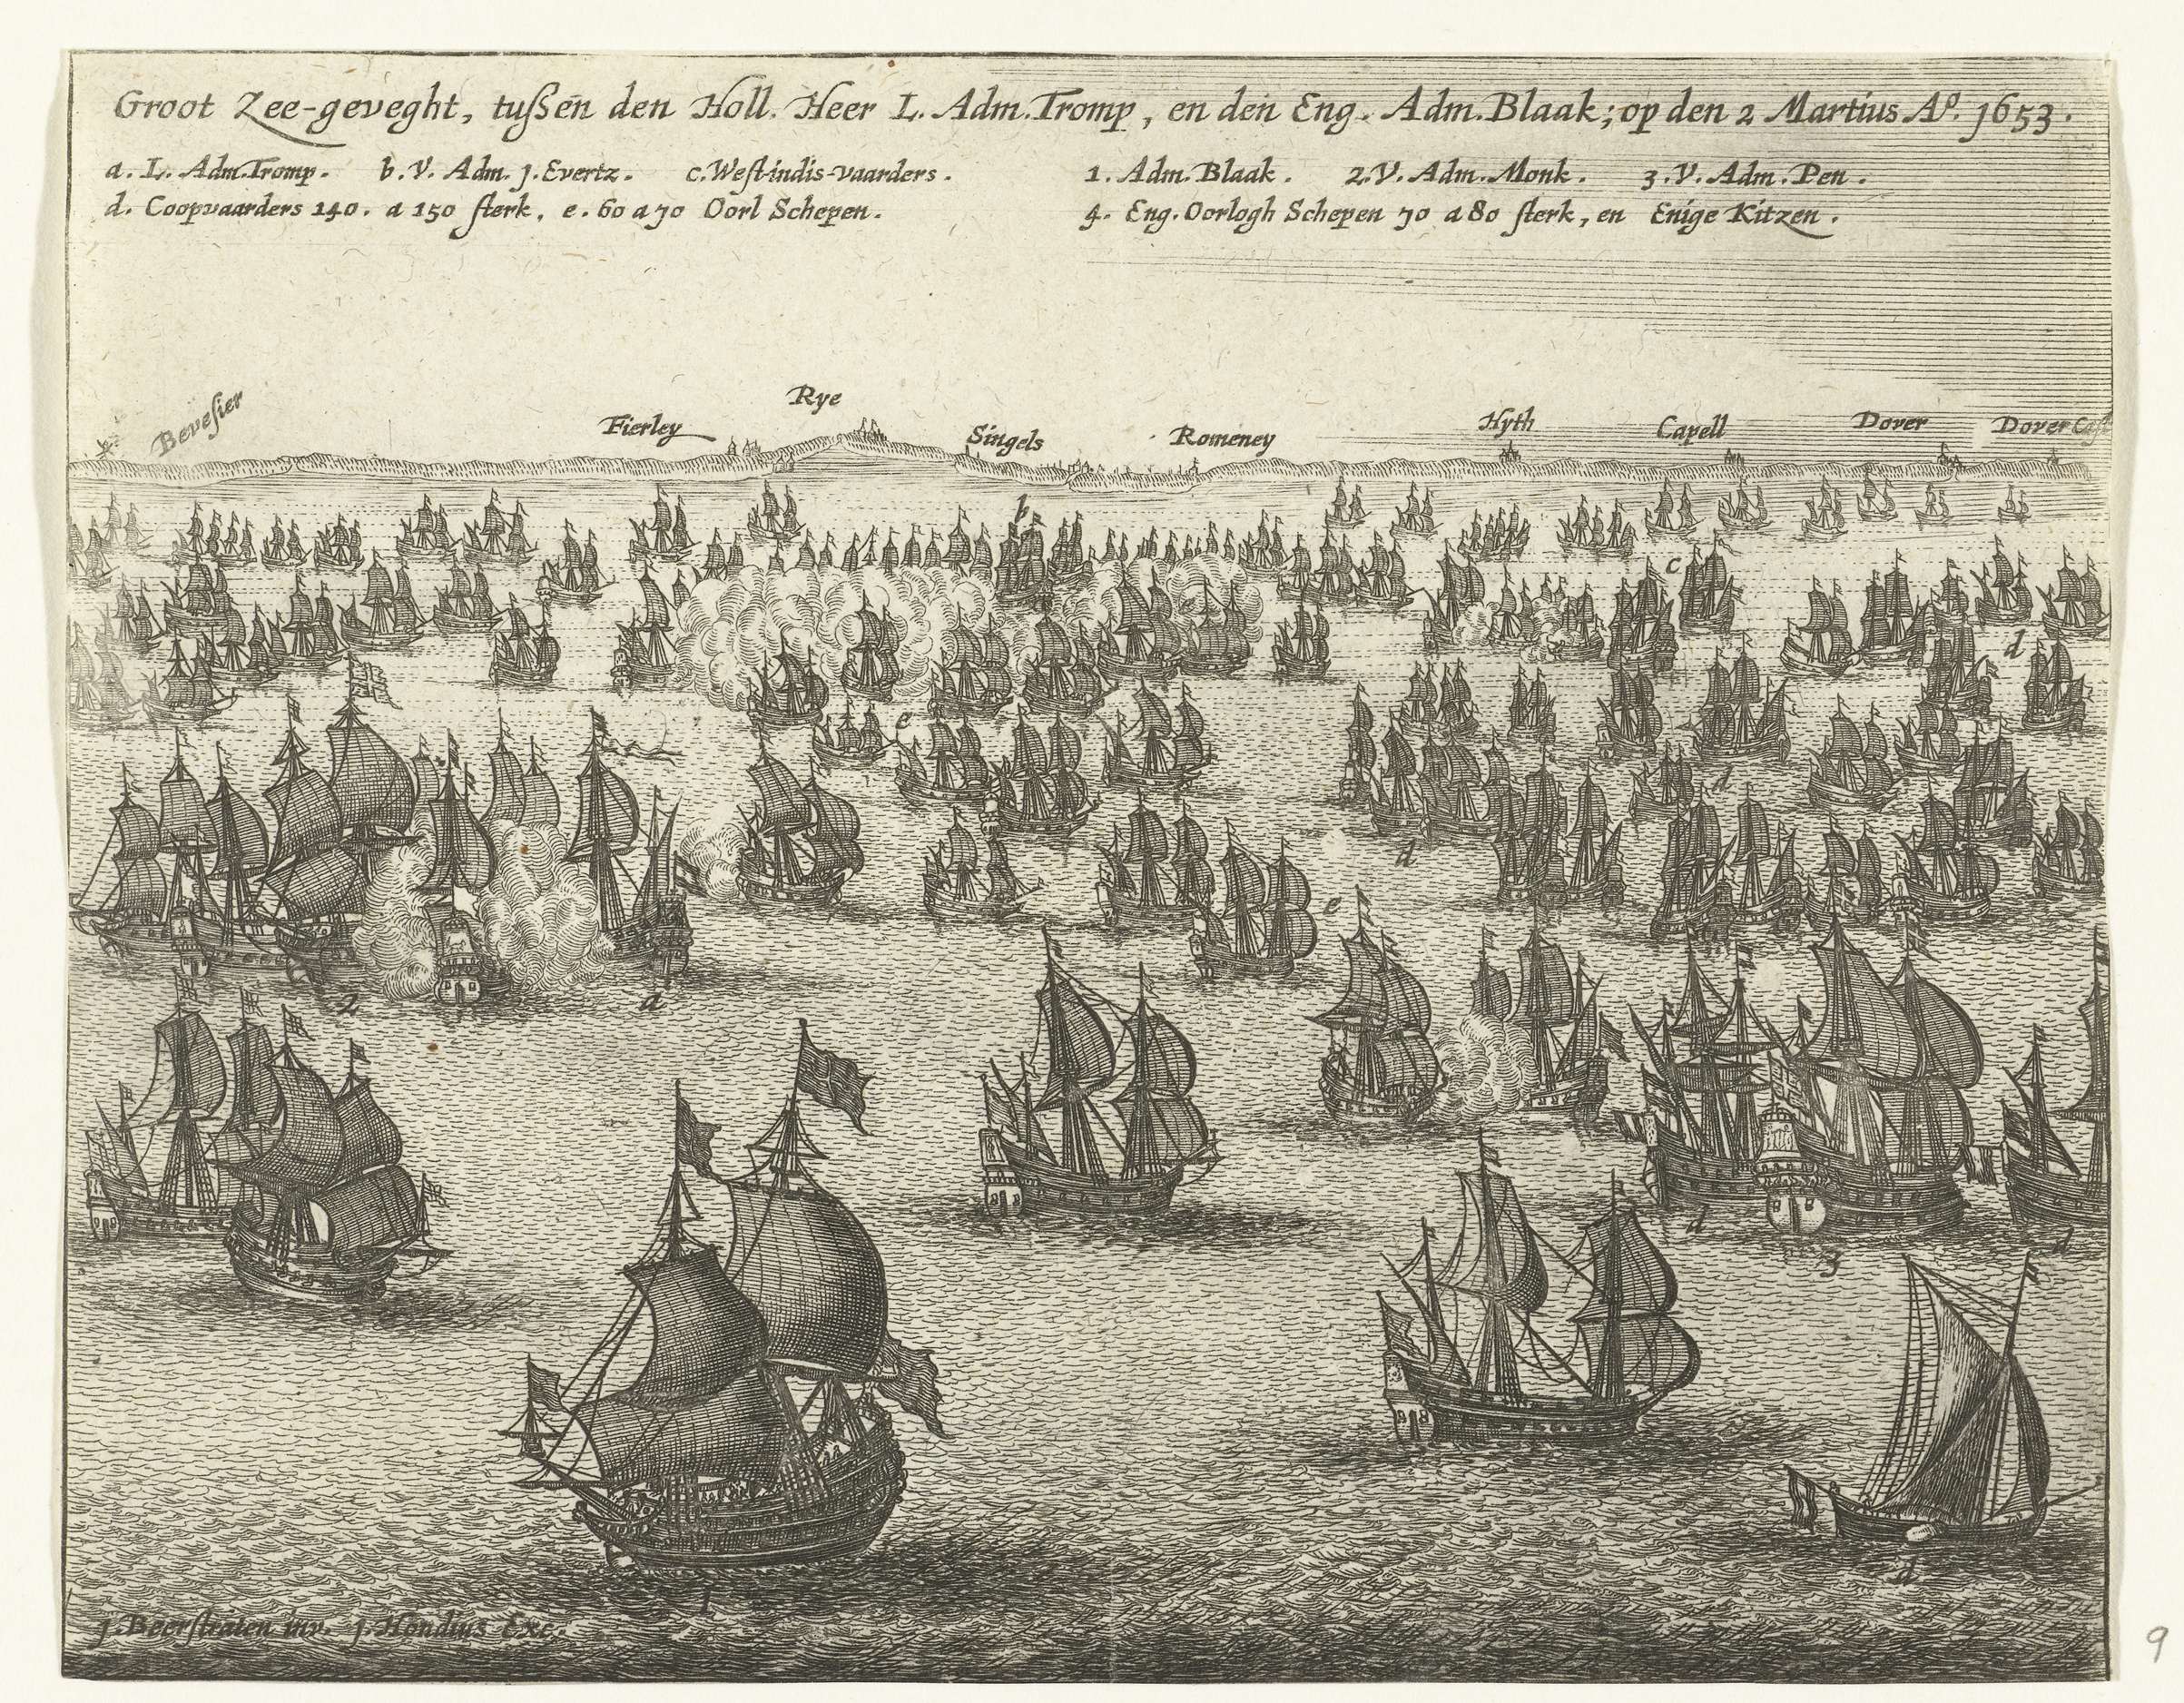 Groot Zee-geveght, tuſsen den Holl. Heer L. Adm. Tromp, en den Eng. Adm. Blaak; op den 2 Martius Aº. 1653.
a. L. Adm. Tromp. b. V. Adm. J. Evertz. c. Weſt-indis-vaarders. 1. Adm. Blaak. 2. V. Adm. Monk. 3. V. Adm. Pen.
d. Coopvaarders 140. a 150 ſterk, e. 60 a 70 Oorl Schepen. 4. Eng. Oorlogh Schepen 70 a 80 ſterk, en Enige Kitzen.
Beveſier
Fierley
Rye
Singels
Romeney
Hyth
Capell
Dover
Dover Caſt
b
c
d
e
d
d
e
2
a
d
3
d
1
d
J. Beerſtraten inv. J. Hondius Exc.
9